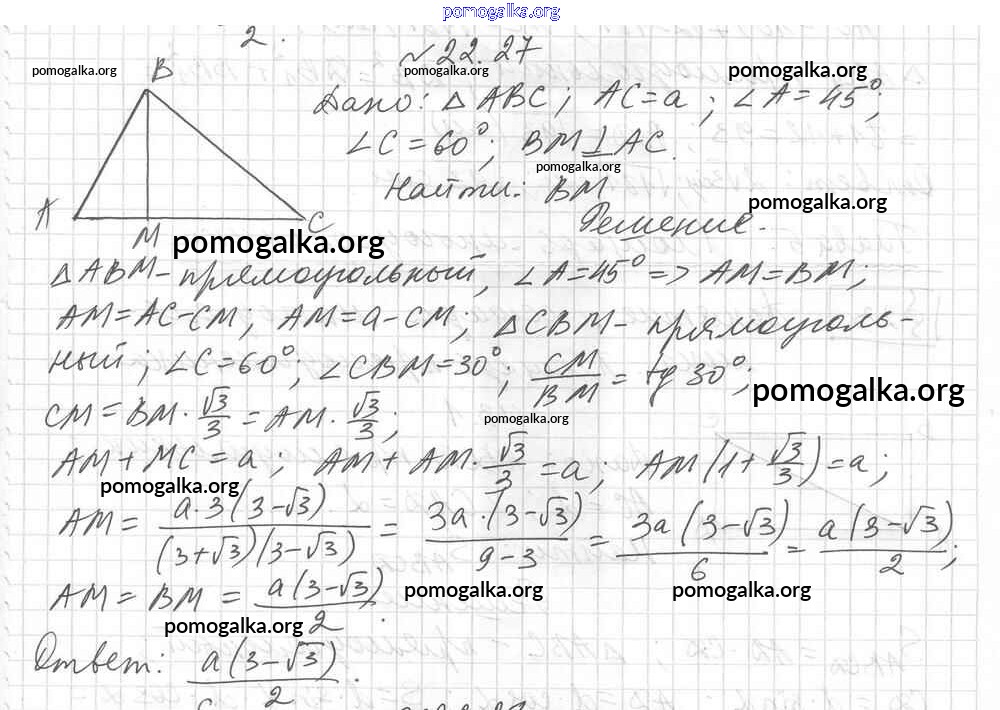 pomogalka.org
2.
№22.27
pomogalka.org pomogalka.org pomogalka.org
B
Дано: △ABC; AC=a; ∠A=45°;
∠C=60°; BM⊥AC.
pomogalka.org
Найти: BM
pomogalka.org
A M C
Решение.
pomogalka.org
△ABM-прямоугольный, ∠A=45° => AM=BM;
AM=AC-CM; AM=a-CM; △CBM-прямоуголь-
ный; ∠C=60°; ∠CBM=30°; CM/BM = tg 30°;
pomogalka.org
CM = BM·√3/3 = AM·√3/3;
pomogalka.org
AM+MC=a; AM+AM·√3/3=a; AM(1+√3/3)=a;
pomogalka.org
AM = a·3(3-√3)/(3+√3)(3-√3) = 3a·(3-√3)/9-3 = 3a(3-√3)/6 = a(3-√3)/2;
pomogalka.org pomogalka.org
AM = BM = a(3-√3)/2.
pomogalka.org
Ответ: a(3-√3)/2.